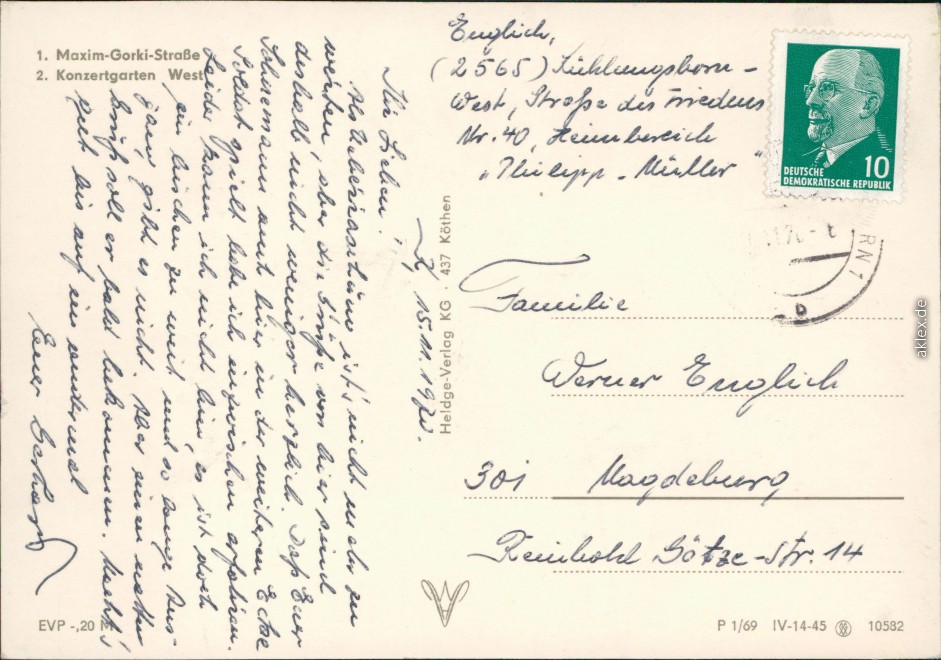 1. Maxim-Gorki-Straße
2. Konzertgarten West
Englich,
(2565) Kühlungsborn –
West, Straße des Friedens
Nr. 40, Heimbereich
"Philipp-Müller"
DEUTSCHE
DEMOKRATISCHE REPUBLIK
10
RN 1
b
K, 15.11.1970.
Ihr Lieben!
ist's nicht mehr zu
werfen, aber die Grüße von hier sind
deshalb nicht weniger herzlich. Daß Euer
amt hier in der weiteren Ecke
Soldat spielt habe ich inzwischen erfahren.
Leider kann ich nicht hin, es ist doch
ein bischen zu weit und so lange Aus-
gang gibt es nicht. Aber einen netten
Gruß soll er bald bekommen. Macht's
gut bis auf ein andermal
Euer Gerhard
Heldge-Verlag KG · 437 Köthen
Familie
Werner Englich
301 Magdeburg
Reinhold Götze-Str. 14
EVP -,20 M
P 1/69 IV-14-45 10582
aklex.de